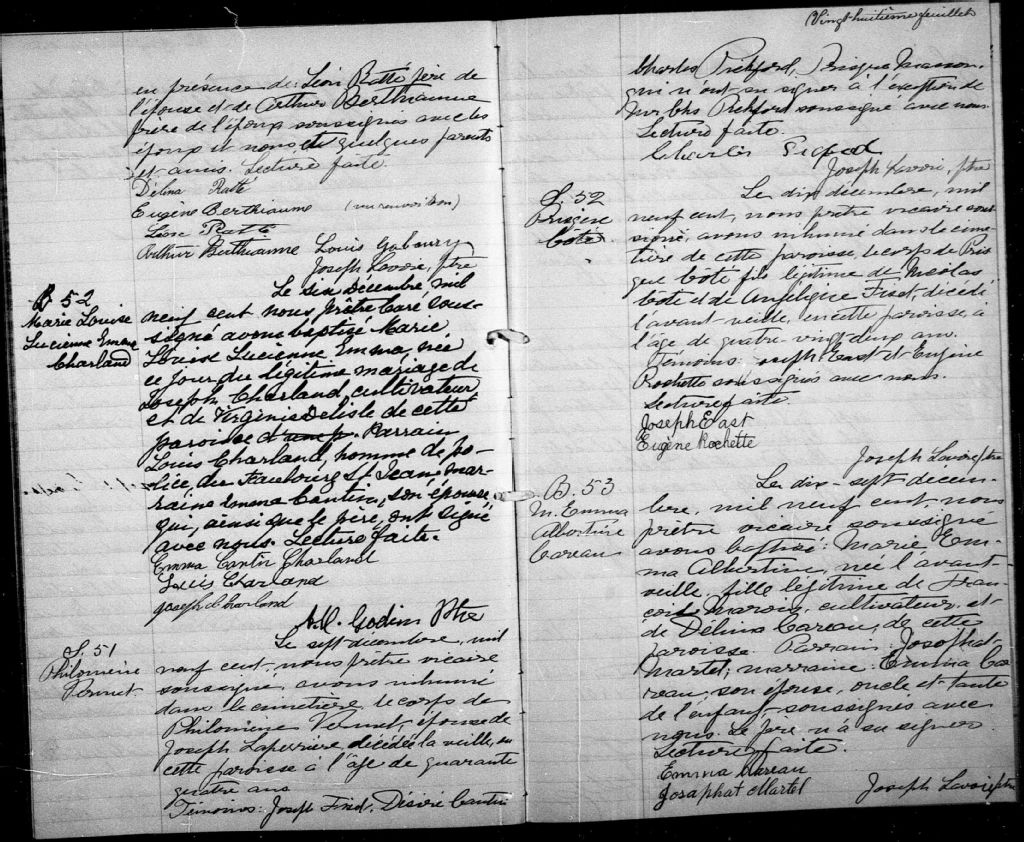 en présence de Léon Ratté père de
l'épouse et de Arthur Berthiaume
frère de l'époux soussignés avec les
époux et nous et quelques parents
et amis. Lecture faite.
Délina Ratté
Eugène Berthiaume
Léon Ratté
Arthur Berthiaume Louis Gaboury
Joseph Lavoie, ptre
B 52
Marie Louise
Lucienne Emma
Charland
Le six décembre, mil
neuf cent nous prêtre Curé sous-
signé avons baptisé Marie
Louise Lucienne Emma, née
ce jour du légitime mariage de
Joseph Charland cultivateur
et de Virginie Delisle de cette
paroisse. Parrain
Louis Charland, homme de po-
lice du Faubourg St Jean, mar-
raine Emma Cantin, son épouse
qui, ainsi que le père, ont signé
avec nous. Lecture faite.
Emma Cantin Charland
Louis Charland
Joseph Charland
Godin Ptre
S. 51
Philomène
Vermet
Le sept décembre, mil
neuf cent, nous prêtre vicaire
soussigné, avons inhumé
dans le cimetière, le corps de
Philomène Vermet, épouse de
Joseph Laperrière décédée la veille, en
cette paroisse à l'âge de quarante
quatre ans
Témoins: Joseph Fiset, Désiré Cantin
Vingt-huitième feuillet
Charles Pickford, Masson,
qui n'ont su signer à l'exception de
Mr Chs Pickford soussigné avec nous.
Lecture faite.
Charles
Joseph Lavoie, ptre
S. 52
Prisque
Coté
Le dix décembre, mil
neuf cent, nous prêtre vicaire sous-
signé, avons inhumé dans le cime-
tière de cette paroisse, le corps de Pris-
que Coté fils légitime de Nicolas
Coté et de Angélique Fiset, décédé
l'avant veille, en cette paroisse, à
l'âge de quatre vingt deux ans.
Témoins: Joseph East et Eugène
Rochette soussignés avec nous.
Lecture faite.
Joseph East
Eugène Rochette
Joseph Lavoie, ptre
B. 53
M. Emma
Albertine
Careau
Le dix-sept décem-
bre, mil neuf cent, nous
prêtre vicaire soussigné
avons baptisé: Marie Em-
ma Albertine, née l'avant-
veille, fille légitime de Fran-
çois Marois, cultivateur, et
de Délina Careau, de cette
paroisse. Parrain: Josaphat
Martel; marraine: Emma Ca-
reau, son épouse, oncle et tante
de l'enfant soussignés avec
nous. Le père n'a su signer.
Lecture faite.
Emma Careau
Josaphat Martel Joseph Lavoie ptre